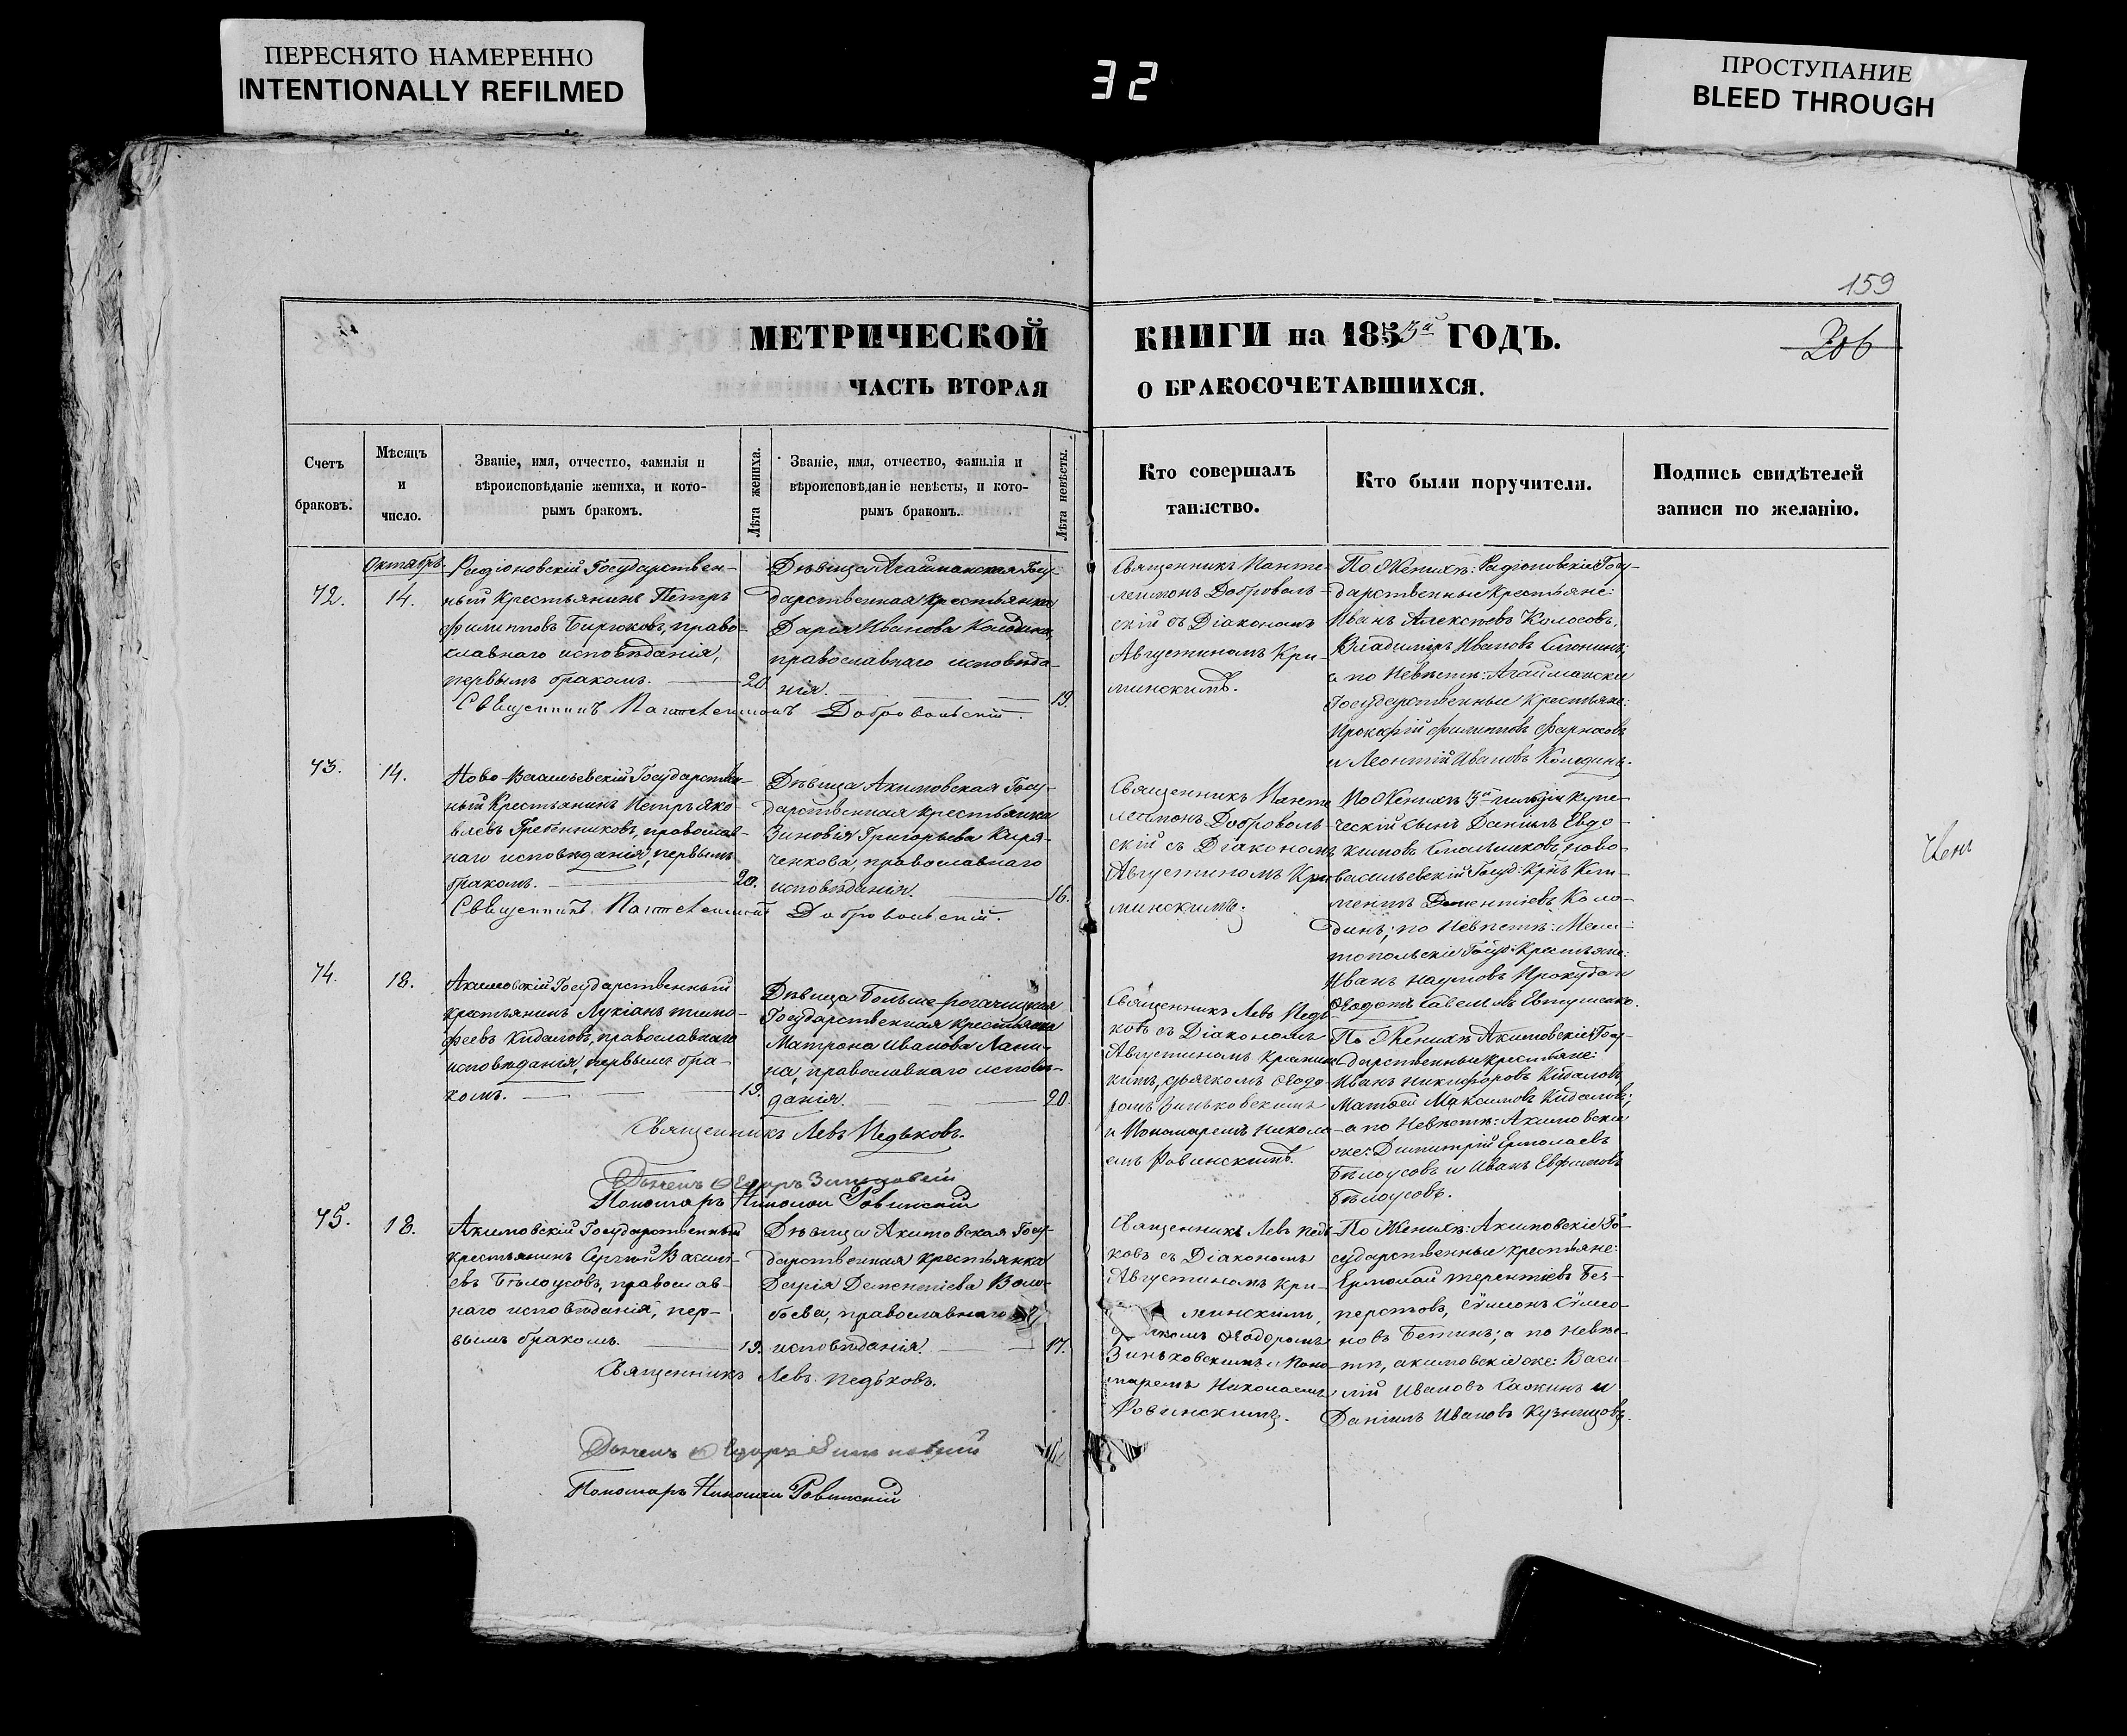 ПЕРЕСНЯТО НАМЕРЕННО
INTENTIONALLY REFILMED
32
ПРОСТУПАНИЕ
BLEED THROUGH
159
206
МЕТРИЧЕСКОЙ КНИГИ на 1853й ГОДЪ.
ЧАСТЬ ВТОРАЯ О БРАКОСОЧЕТАВШИХСЯ.
Счетъ браковъ.
Мѣсяцъ и число.
Званіе, имя, отчество, фамилія и
вѣроисповѣданіе жениха, и кото-
рымъ бракомъ.
Лѣта жениха.
Званіе, имя, отчество, фамилія и
вѣроисповѣданіе невѣсты, и кото-
рымъ бракомъ.
Лѣта невѣсты.
Кто совершалъ
таинство.
Кто были поручители.
Подпись свидѣтелей
записи по желанію.
72.
Октябрь
14.
Радіоновскій Государствен-
ный Крестьянинъ Петръ
Филипповъ Бирюковъ, право-
славнаго исповѣданія,
первымъ бракомъ. 20.
Дѣвица Агайманская Госу-
дарственная крестьянка
Дарія Иванова
православнаго исповѣда-
нія. 19.
Священникъ Пантелеимонъ Добровольскій.
Священникъ Панте-
леимонъ Доброволь-
скій съ Діакономъ
Августиномъ Кри-
минскимъ.
По Женихѣ: Радіоновскіе Госу-
дарственные крестьяне:
Иванъ Алексѣевъ Колосовъ,
Владиміръ Ивановъ
а по Невѣстѣ: Агайманскіе
Государственные крестьяне:
Прокофій Филипповъ
и Леонтій Ивановъ Колодинъ.
73.
14.
Ново-Васильевскій Государствен-
ный Крестьянинъ Петръ Яко-
влевъ Гребенниковъ, православ-
наго исповѣданія, первымъ
бракомъ. 20.
Дѣвица Акимовская Госу-
дарственная крестьянка
Зиновія Григорьева Киря-
ченкова, православнаго
исповѣданія. 16.
Священникъ Пантелеимонъ Добровольскій.
Священникъ Панте
леимонъ Доброволь-
скій съ Діакономъ
Августиномъ Кри-
минскимъ.
По Женихѣ 3й гильдіи Купе-
ческій сынъ Даніилъ Евдо-
кимовъ ново-
васильевскій Госуд: Крнъ Кли-
ментъ Дементіевъ Коло-
динъ; по Невѣстѣ: Мели-
топольскіе Госуд: Крестьяне:
Иванъ Наумовъ Прокуда и
Ѳедотъ Савельевъ Евтушенко.
74.
18.
Акимовскій Государственный
крестьянинъ Лукіанъ Тимо-
феевъ Кидаловъ, православнаго
исповѣданія, первымъ бра-
комъ. 19.
Дѣвица Больше-рогачицкая
Государственная крестьянка
Матрона Иванова Лапи-
на, православнаго исповѣ-
данія. 20.
Священникъ Левъ Педьковъ.
Дьячекъ Ѳедоръ Зиньковскій
Пономарь Николай Ровинскій
Священникъ Левъ Педь
ковъ съ Діакономъ
Августиномъ Кримин
скимъ, дьячкомъ Ѳедо-
ромъ Зиньковскимъ
и Пономаремъ Никола-
емъ Ровинскимъ.
По Женихѣ Акимовскіе Госу-
дарственные крестьяне:
Иванъ Никифоровъ Кидаловъ,
Матвей Максимовъ Кидаловъ;
а по Невѣстѣ: Акимовскіе
же: Димитрій Ермолаевъ
Бѣлоусовъ и Иванъ Евфимовъ
Бѣлоусовъ.
75.
18.
Акимовскій Государственный
крестьянинъ Сергѣй Василь-
евъ Бѣлоусовъ, православ-
наго исповѣданія, пер-
вымъ бракомъ. 19.
Дѣвица Акимовская Госу-
дарственная крестьянка
Дарія Дементіева Воло-
боева, православнаго
исповѣданія. 17.
Священникъ Левъ Педьковъ.
Дьячекъ Ѳедоръ Зиньковскій
Пономарь Николай Ровинскій
Священникъ Левъ Педь
ковъ съ Діакономъ
Августиномъ Кри-
минскимъ,
Ѳедоромъ
Зиньковскимъ и Поно-
маремъ Николаемъ
Ровинскимъ.
По Женихѣ: Акимовскіе Го-
сударственные крестьяне:
Ермолай Терентіевъ Без-
перстовъ, Сѵмеонъ Сѵмео-
новъ Бетинъ; а по Невѣс-
тѣ, акимовскіе же: Васи-
лій Ивановъ Саокинъ и
Даніилъ Ивановъ Кузнецовъ.
Член